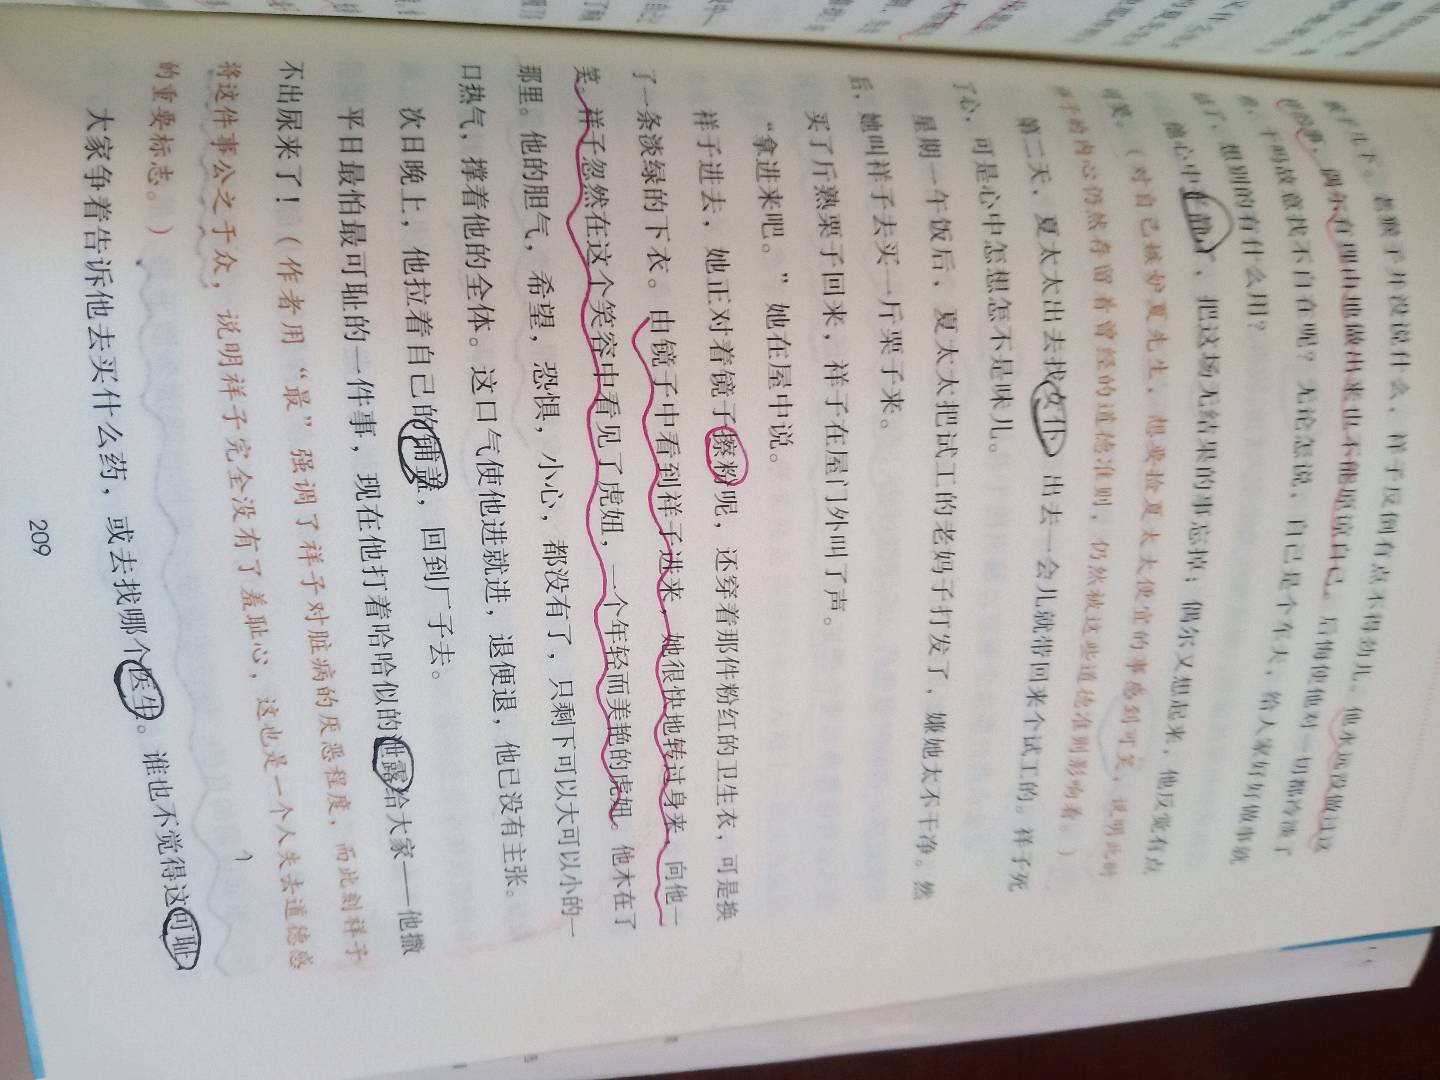 孩子几下。老猴子并没说什么，祥子反倒有点不得劲儿。他永远没做过这
样的事，偶尔有理由地做出来也不能原谅自己。后悔使他对一切都冷淡了
些，干吗故意找不自在呢？无论怎说，自己是个车夫，给人家好好做事就
结了，想别的有什么用？
他心中 了，把这场无结果的事忘掉；偶尔又想起来，他反觉有点
可笑。（对自己嫉妒夏先生，想要捡夏太太便宜的事感到可笑，说明此时
祥子的内心仍然存留着曾经的道德准则，仍然被这些道德准则影响着。）
第二天，夏太太出去找女仆。出去一会儿就带回来个试工的。祥子死
了心，可是心中怎想怎不是味儿。
星期一午饭后，夏太太把试工的老妈子打发了，嫌她太不干净。然
后，她叫祥子去买一斤栗子来。
买了斤熟栗子回来，祥子在屋门外叫了声。
“拿进来吧。”她在屋中说。
祥子进去，她正对着镜子擦粉呢，还穿着那件粉红的卫生衣，可是换
了一条淡绿的下衣。由镜子中看到祥子进来，她很快地转过身来，向他一
笑。祥子忽然在这个笑容中看见了虎妞，一个年轻而美艳的虎妞。他木在了
那里。他的胆气，希望，恐惧，小心，都没有了，只剩下可以大可以小的一
口热气，撑着他的全体。这口气使他进就进，退便退，他已没有主张。
次日晚上，他拉着自己的铺盖，回到厂子去。
平日最怕最可耻的一件事，现在他打着哈哈似的泄露给大家——他撒
不出尿来了！（作者用“最”强调了祥子对脏病的厌恶程度，而此刻祥子
将这件事公之于众，说明祥子完全没有了羞耻心，这也是一个人失去道德感
的重要标志。）
大家争着告诉他去买什么药，或去找哪个医生。谁也不觉得这可耻，
209